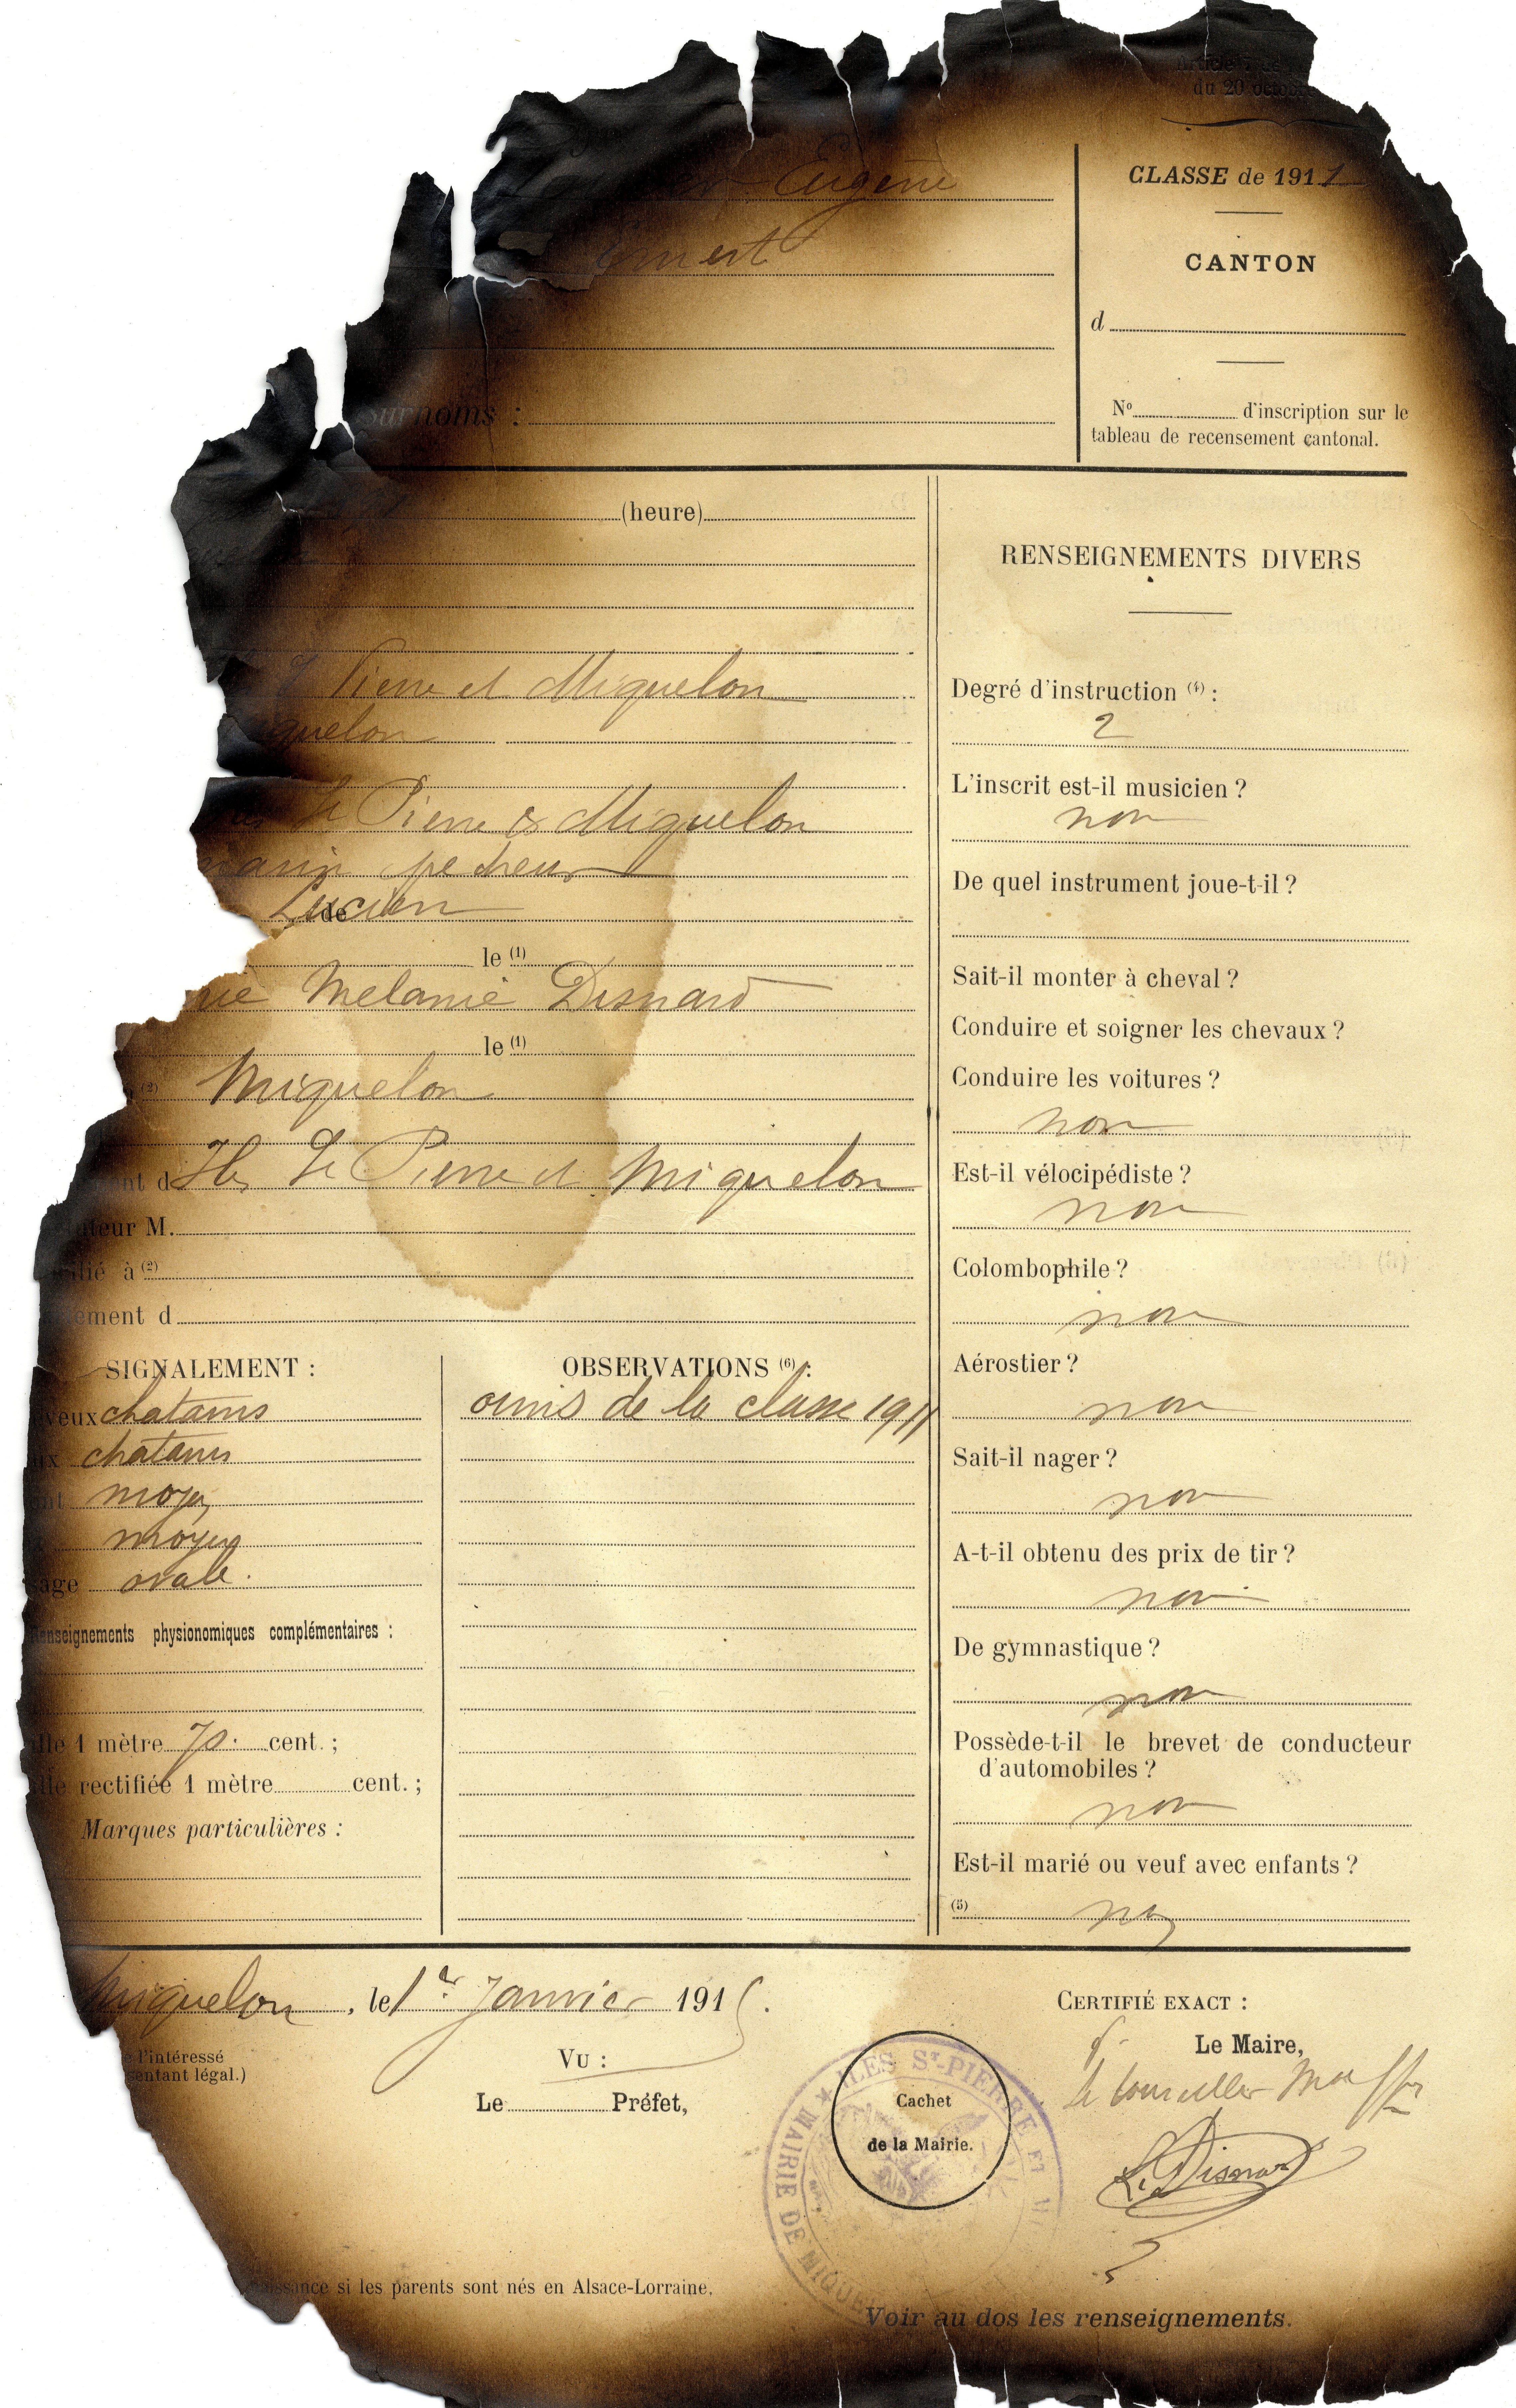 Article
du 20 octobre
Eugène
CLASSE de 1911
CANTON
d
Surnoms :
N° d'inscription sur le
tableau de recensement cantonal.
(heure)
RENSEIGNEMENTS DIVERS
Pierre et Miquelon
Degré d'instruction (4) :
2
quelon
L'inscrit est-il musicien ?
non
St Pierre & Miquelon
marin pecheur
De quel instrument joue-t-il ?
de Lucien
le (1)
Sait-il monter à cheval ?
Melanie Disnard
Conduire et soigner les chevaux ?
le (1)
Conduire les voitures ?
(2) Miquelon
non
Iles St Pierre et Miquelon
Est-il vélocipédiste ?
non
teur M.
ilié à (2)
Colombophile ?
non
ement d
SIGNALEMENT :
OBSERVATIONS (6) :
Aérostier ?
veux chatains
omis de la classe 1911
non
chatains
Sait-il nager ?
moyen
non
moyen
A-t-il obtenu des prix de tir ?
sage ovale.
non
Renseignements physionomiques complémentaires :
De gymnastique ?
non
ille 1 mètre 70. cent. ;
Possède-t-il le brevet de conducteur
d'automobiles ?
ille rectifiée 1 mètre cent. ;
non
Marques particulières :
Est-il marié ou veuf avec enfants ?
(5) non
Miquelon, le 1er Janvier 1915.
CERTIFIÉ EXACT :
Le Maire,
l'intéressé
entant légal.)
VU :
Le Préfet,
Le conseiller
Cachet
de la Mairie.
ILES ST-PIERRE ET MI
MAIRIE DE MIQUE
L. Disnard
naissance si les parents sont nés en Alsace-Lorraine.
Voir au dos les renseignements.